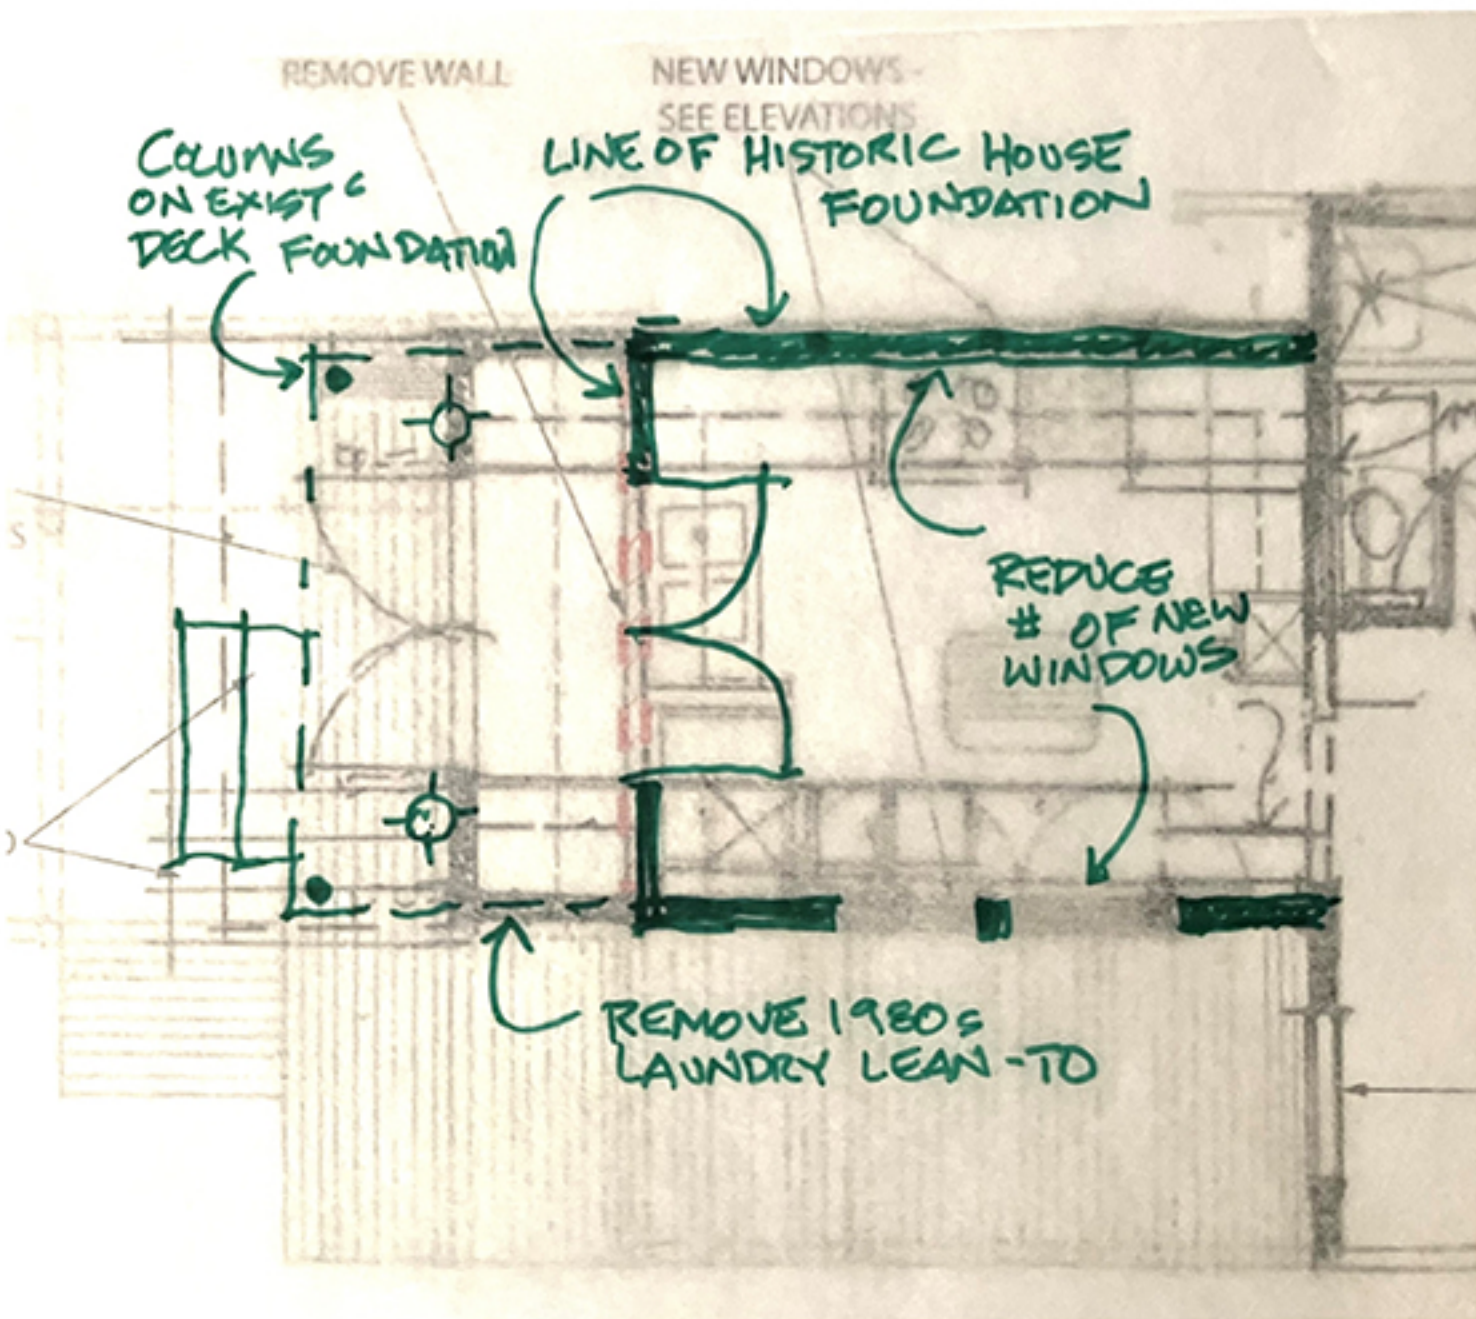 REMOVE WALL
NEW WINDOWS -
SEE ELEVATIONS
COLUMNS
ON EXIST'G
DECK FOUNDATION
LINE OF HISTORIC HOUSE
FOUNDATION
REDUCE
# OF NEW
WINDOWS
REMOVE 1980s
LAUNDRY LEAN-TO
S